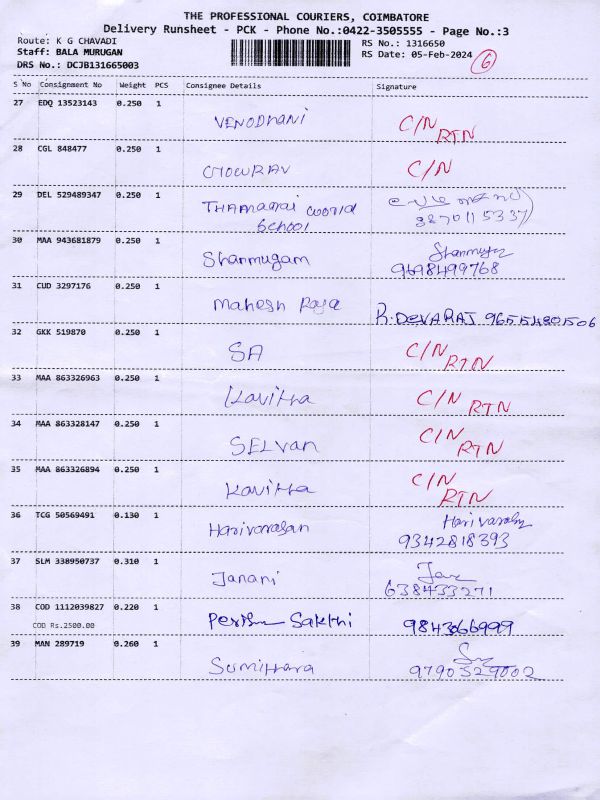 THE PROFESSIONAL COURIERS, COIMBATORE
Delivery Runsheet - PCK - Phone No.:0422-3505555 - Page No.:3
Route: K G CHAVADI RS No.: 1316650
Staff: BALA MURUGAN RS Date: 05-Feb-2024 6
DRS No.: DCJB131665003
S No Consignment No Weight PCS Consignee Details Signature
27 EDQ 13523143 0.250 1 VENODHANI C/N RTN
28 CGL 848477 0.250 1 GOWRAV C/N
29 DEL 529489347 0.250 1 THAMARAI WORLD
School 3870115337
30 MAA 943681879 0.250 1 Shanmugam Shanmugam
9698499768
31 CUD 3297176 0.250 1 Mahesh Raja R.DEVARAJ 96554801506
32 GKK 519870 0.250 1 SA C/N RTN
33 MAA 863326963 0.250 1 Kavitha C/N RTN
34 MAA 863328147 0.250 1 SELVAN C/N RTN
35 MAA 863326894 0.250 1 Kavitha C/N RTN
36 TCG 50569491 0.130 1 Harivarasan
9342818393
37 SLM 338950737 0.310 1 Janani
638433271
38 COD 1112039827 0.220 1 Sakthi 9843066999
COD Rs.2500.00
39 MAN 289719 0.260 1 Sumithara
9790529002